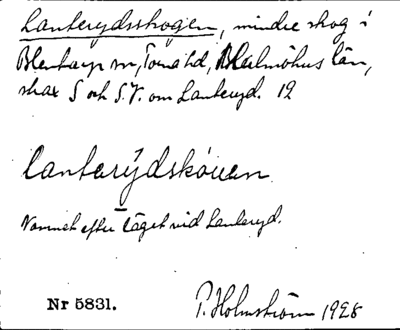 Lanterydsskogen, mindre skog i
Blentarps sn, Torna hd, Malmöhus län,
strax S och S.V. om Lanteryd. 12
lantarýdskóuen
Namnet efter läget vid Lanteryd.
Nr 5831.
P. Holmström 1928